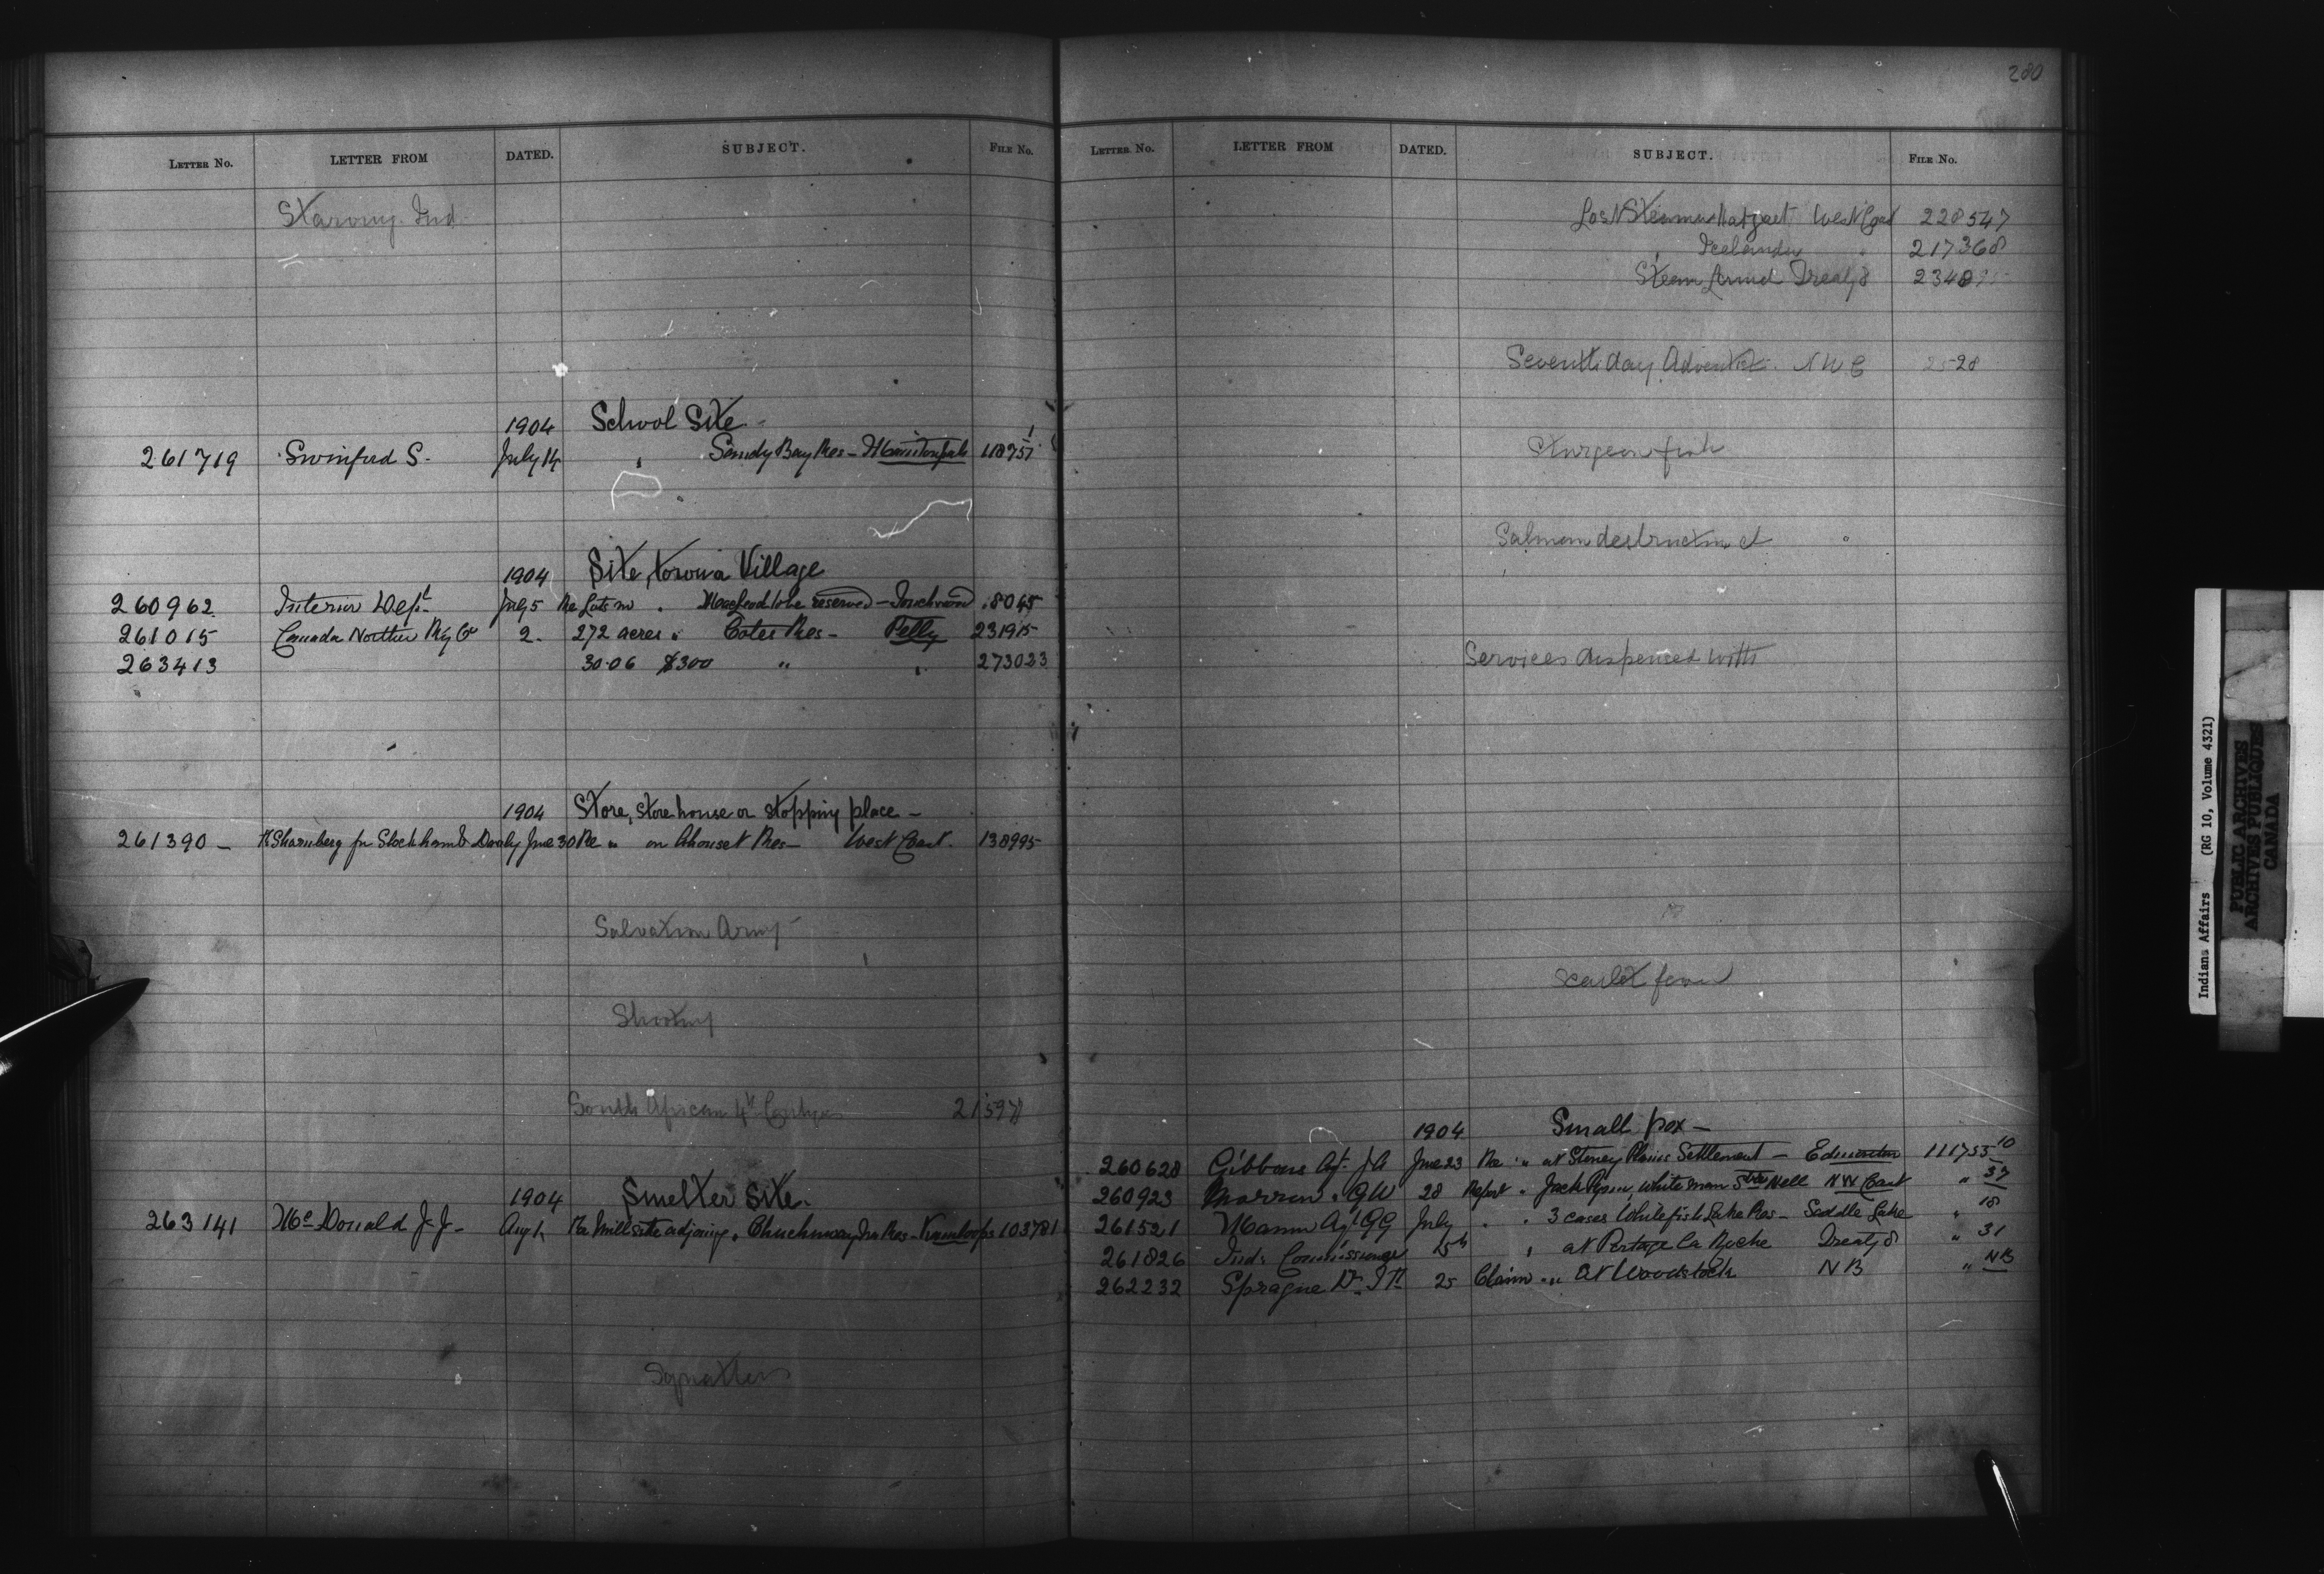 280
LETTER NO. LETTER FROM DATED. SUBJECT. FILE No.
Starving Ind
1904 School Site
261719 Swinford S. July 14 " Sandy Bay Res - 118757
1904 Site, town Village
260962 Interior Dept July 5 Re Lots in " Macleod to be reserved - Touchwood 8045
261015 Canada Northern Ry Co 2. 272 acres " Cotes Res - Pelly 231915
263413 30.06 $300 " " 273023
1904 Store, store house or stopping place -
261390 - for Stockham & Dawley June 30 Re " on Ahouset Res - West Coast. 138995
Salvation Army
Shooting
South African 4th
1904 Smelter Site.
263141 McDonald J.J. - Aug 1 Re Mill site adjoining " Res - Kamloops 103781
Signatures
LETTER No. LETTER FROM DATED. SUBJECT. FILE No.
Lost Steamer West Coast 228547
Icelander " 217368
Steam Treaty 8
Seventh day Adventists. NWC
Sturgeon fish
Salmon destruction of "
Services dispensed with
Scarlet fever
1904 Small pox -
260628 Gibbons Agt. JA June 23 Re " at Stoney Plains Settlement - Edmonton 111755 10
260923 Morrow " GW 28 Report " Jack white man NW Coast " 37
261521 Mann Agt GG July " " 3 cases Whitefish Lake Res - Saddle Lake " 18
261826 Ind. Commissioner 15th " at Portage La Roche Treaty 8 " 31
262232 Sprague Dr. 25 Claim " " at Woodstock NB " NB
Indians Affairs (RG 10, Volume 4321)
PUBLIC ARCHIVES
ARCHIVES PUBLIQUES
CANADA